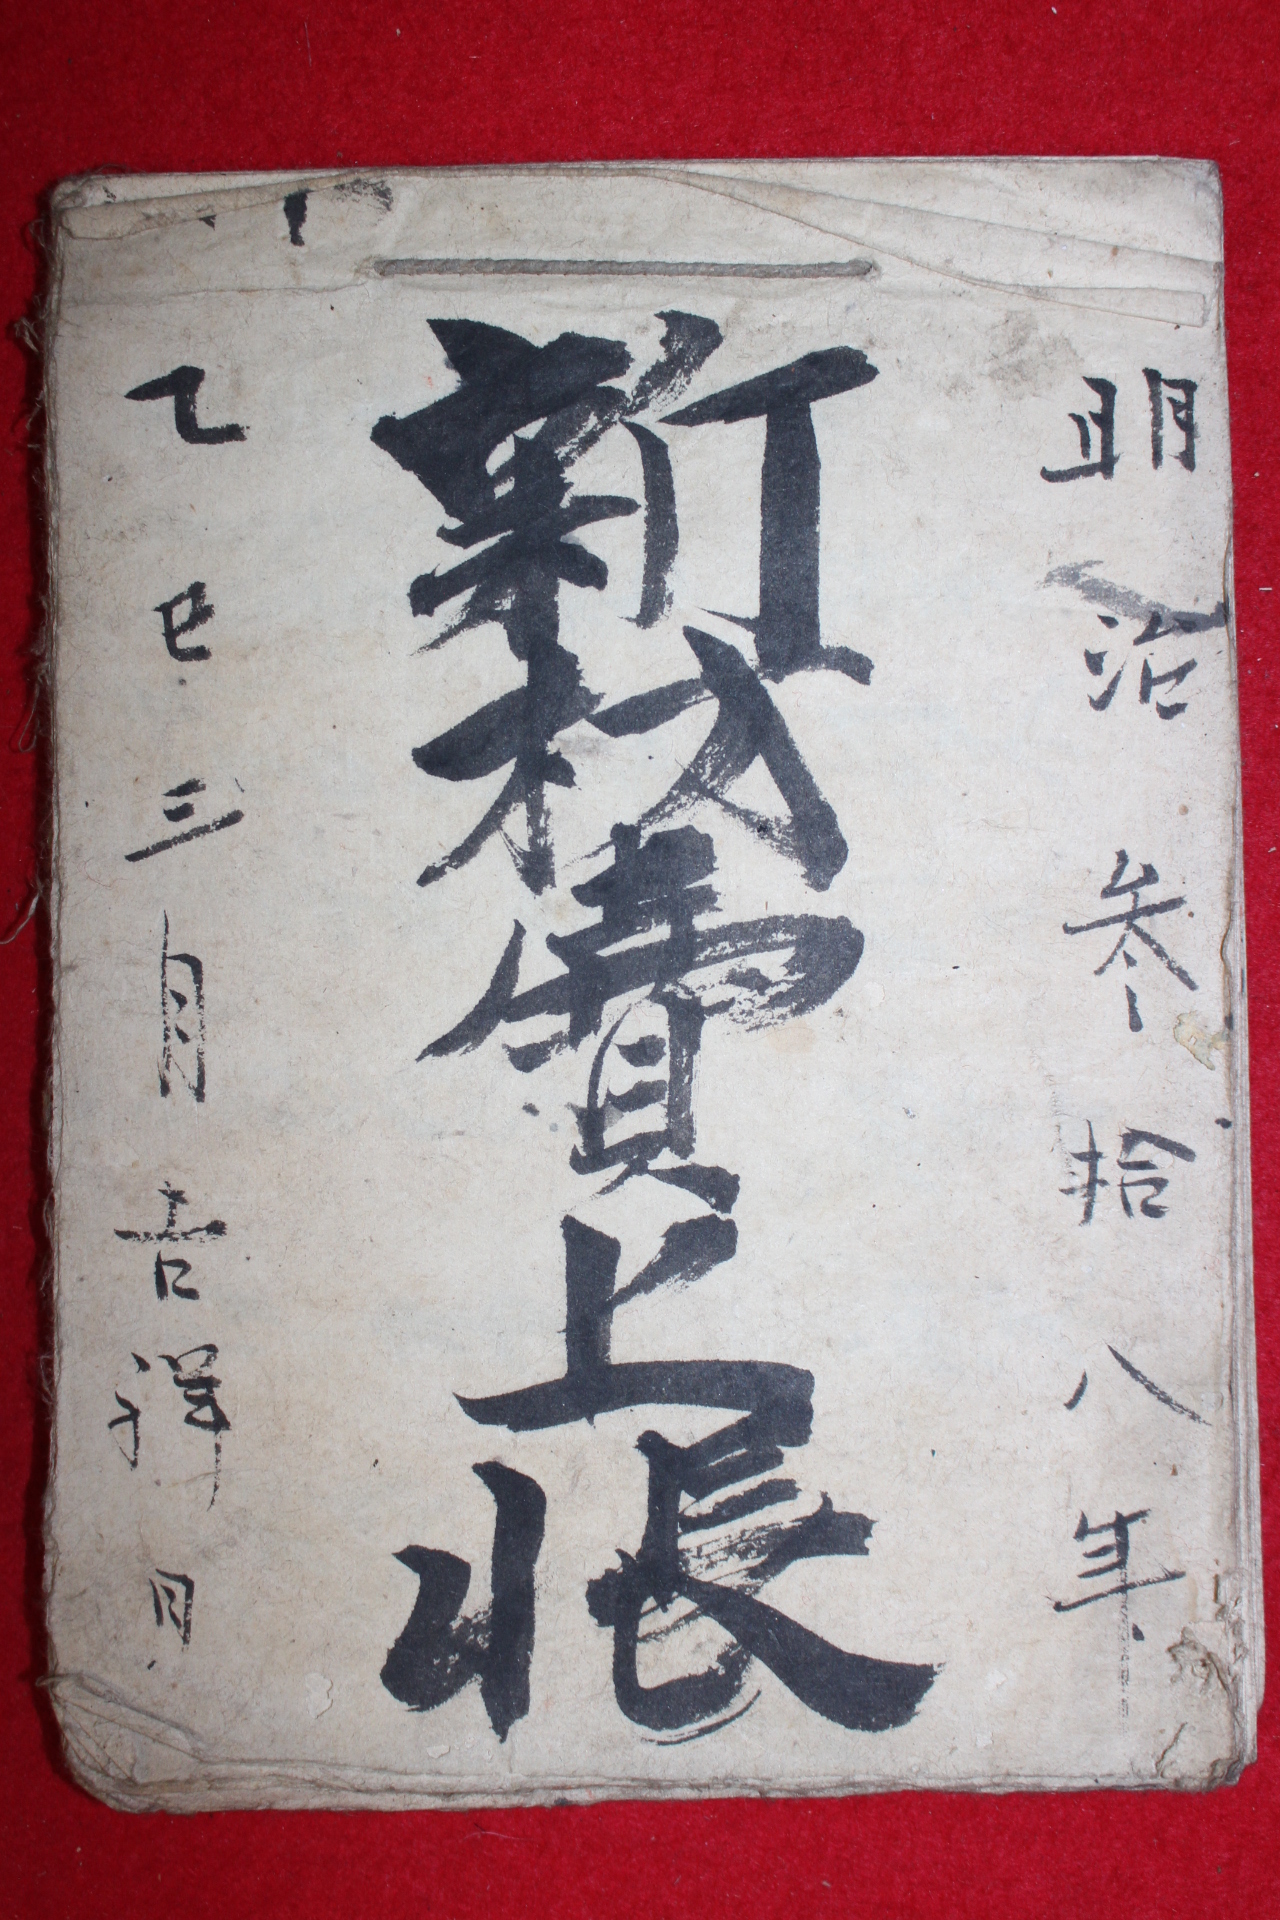 明治参拾八年
新村費上帳
乙巳三月吉祥日